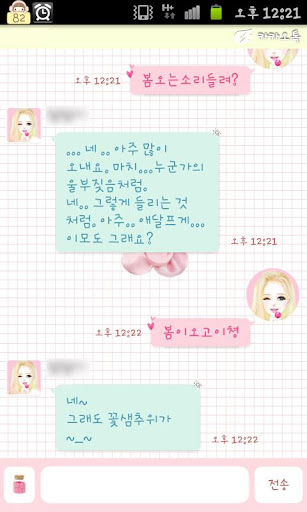 82 H+ 오후 12:21
카카오톡
오후 12:21 봄오는소리들려?
,,, 네 ,, 아주 많이
오내요. 마치,,,누군가의
울부짖음처럼.
네,, 그렇게 들리는 것
처럼. 아주,, 애달프게,,,
이모도 그래요?
오후 12:21
오후 12:22 봄이오고이쪙
네~
그래도 꽃샘추위가
~_~
오후 12:22
전송